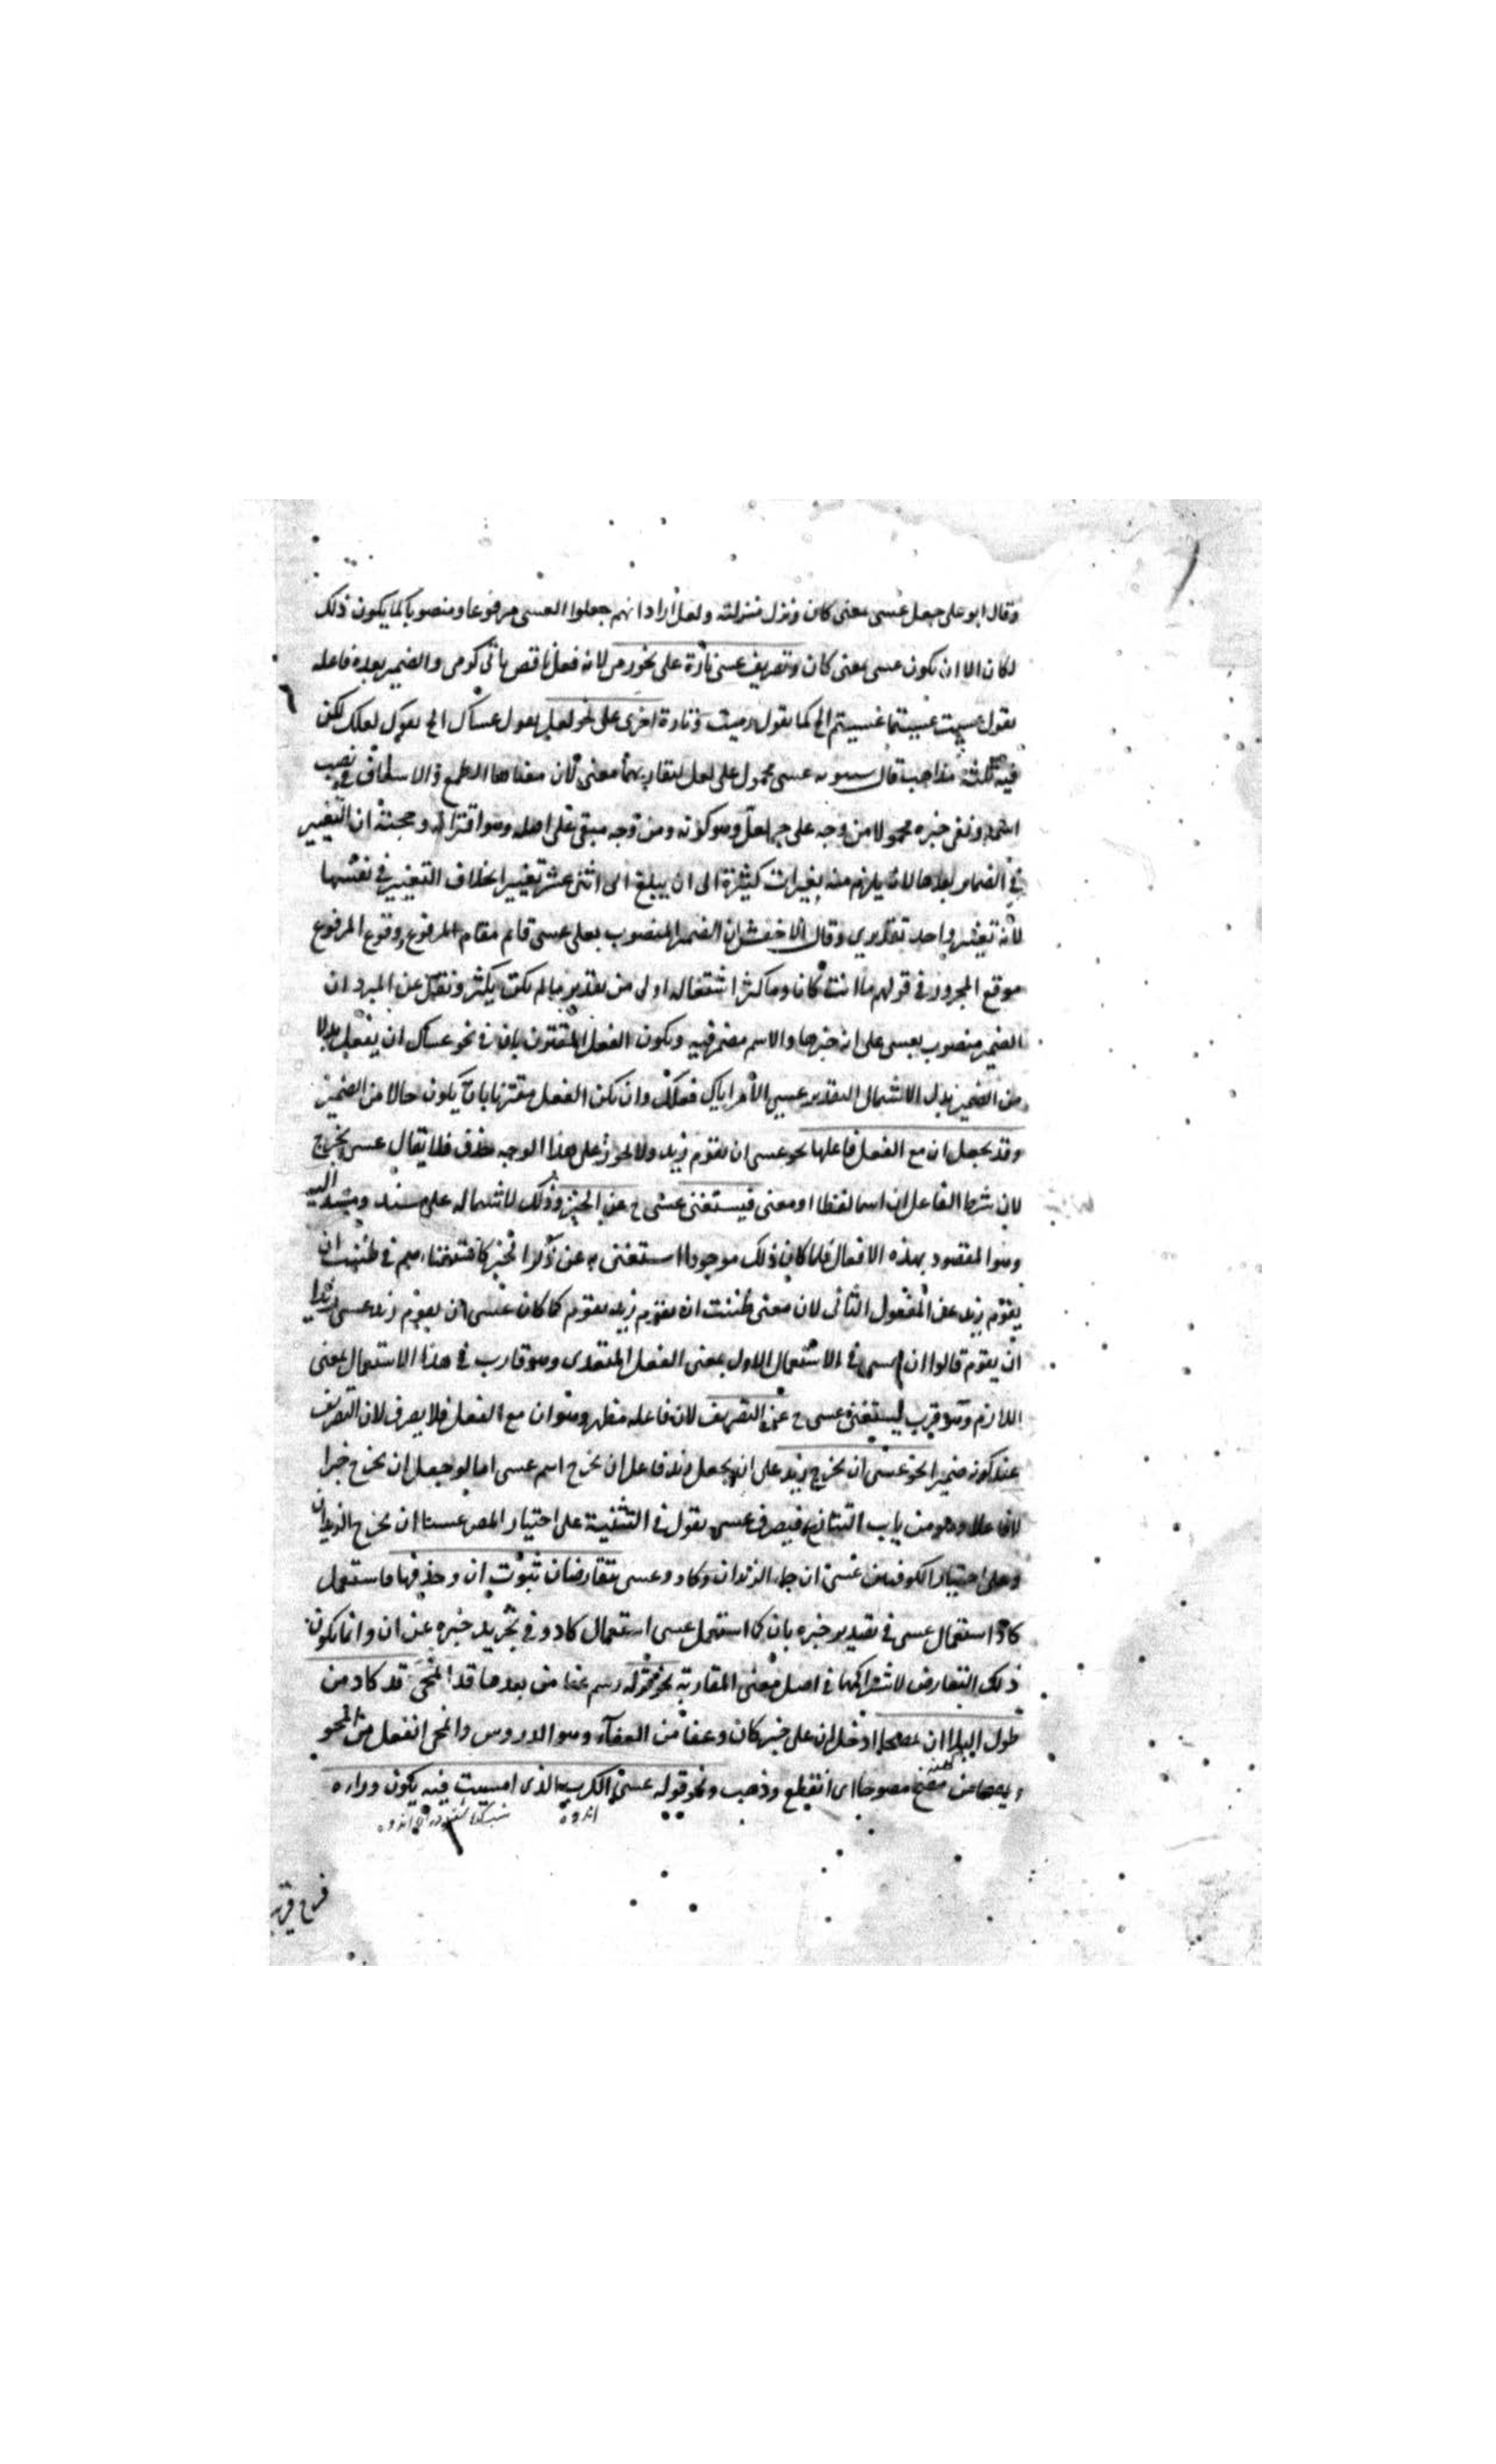 وقال ابو على جعل عسى بمعنى كان ونزل منزلته ولعل اراد انهم جعلوا العسى مرفوعا ومنصوبا كما يكون ذلك
لكان الا ان يكون عسى بمعنى كان وتصريف عسى تارة على نحو رمى لانه فعل ناقص يائى كرمى والضمير بعده فاعله
يقول عسيت عسيتما عسيتم الخ كما يقول رميت وتارة اخرى على نحو لعل يقول عساك الخ يقول لعلك لكن
فيه ثلثة مذاهب قال سيبويه عسى محمول على لعل لتقاربهما معنى لان معناهما الطمع والاشفاق فى نصب
اسمه وبقى خبره محمولا من وجه على خبر لعل وهو كونه ومن وجه مبقى على اصله وهو اقترانه وحجته ان التغيير
فى الضمائر بعدها لانه يلزم منه تغييرات كثيرة الى ان يبلغ الى اثنى عشر تغييرا بخلاف التغيير فى نفسها
لانه تغيير واحد تقديرى وقال الاخفش ان الضمير المنصوب بعد عسى قائم مقام المرفوع وقوع المرفوع
موقع المجرور فى قولهم ما انت كانا وما كثر استعماله اولى من تقدير ما لم يكثر ونقل عن المبرد ان
الضمير منصوب بعسى على انه خبرها والاسم مضمر فيه ويكون الفعل المقترن بان فى نحو عساك ان يفعل بدلا
من الضمير بدل الاشتمال التقدير عسى الامر اياك فعلك وان لم يكن الفعل مقترنا بان يكون حالا من الضمير
وقد يجعل ان مع الفعل فاعلها نحو عسى ان يقوم زيد ولا يجوز على هذا الوجه حذف فلا يقال عسى يخرج
لان شرط الفاعل ان اسما لفظا او معنى فيستغنى عسى ح عن الخبر وذلك لاشتماله على مسند ومسند اليه
وهو المقصود بهذه الافعال فلما كان ذلك موجودا استغنى به عن ذكر الخبر كاستغنائهم فى ظننت ان
يقوم زيد عن المفعول الثانى لان معنى ظننت ان يقوم زيد يقوم كما كان عسى ان يقوم زيد عسى زيدا
ان يقوم قالوا ان عسى فى الاستعمال الاول بمعنى الفعل المتعدى وهو قارب فى هذا الاستعمال بمعنى
اللازم وهو قرب ليستغنى عسى ح عن التصريف لان فاعله مظهر وهو ان مع الفعل فلا يصرف لان التصريف
عند كونه ضميرا نحو عسى ان يخرج زيد على ان يجعل زيد فاعل ان يخرج اسم عسى اما لو جعل ان يخرج خبرا
لا فاعلا وهو من باب التنازع فيصرف عسى يقول فى التثنية على اختيار المص عسيا ان يخرج الزيدان
وعلى اختيار الكوفيين عسى ان جاء الزيدان وكاد وعسى يتقارضان ثبوت ان وحذفها فاستعمل
كاد استعمال عسى فى تصدير خبره بان كما استعمل عسى استعمال كاد وفى تجريد خبره عن ان وانما يكون
ذلك التقارض لاشتراكهما فى اصل معنى المقاربة نحو قوله رسم عفا من بعد ما قد انمحى قد كاد من
طول البلى ان يمصحا ادخل ان على خبر كان وعفا من العفاء وهو الدروس وانمحى انفعل من المحو
ويمصحا من مصح مصوحا اى انقطع وذهب ونحو قوله عسى الكرب الذى امسيت فيه يكون وراءه
اندوه
فرج قريب